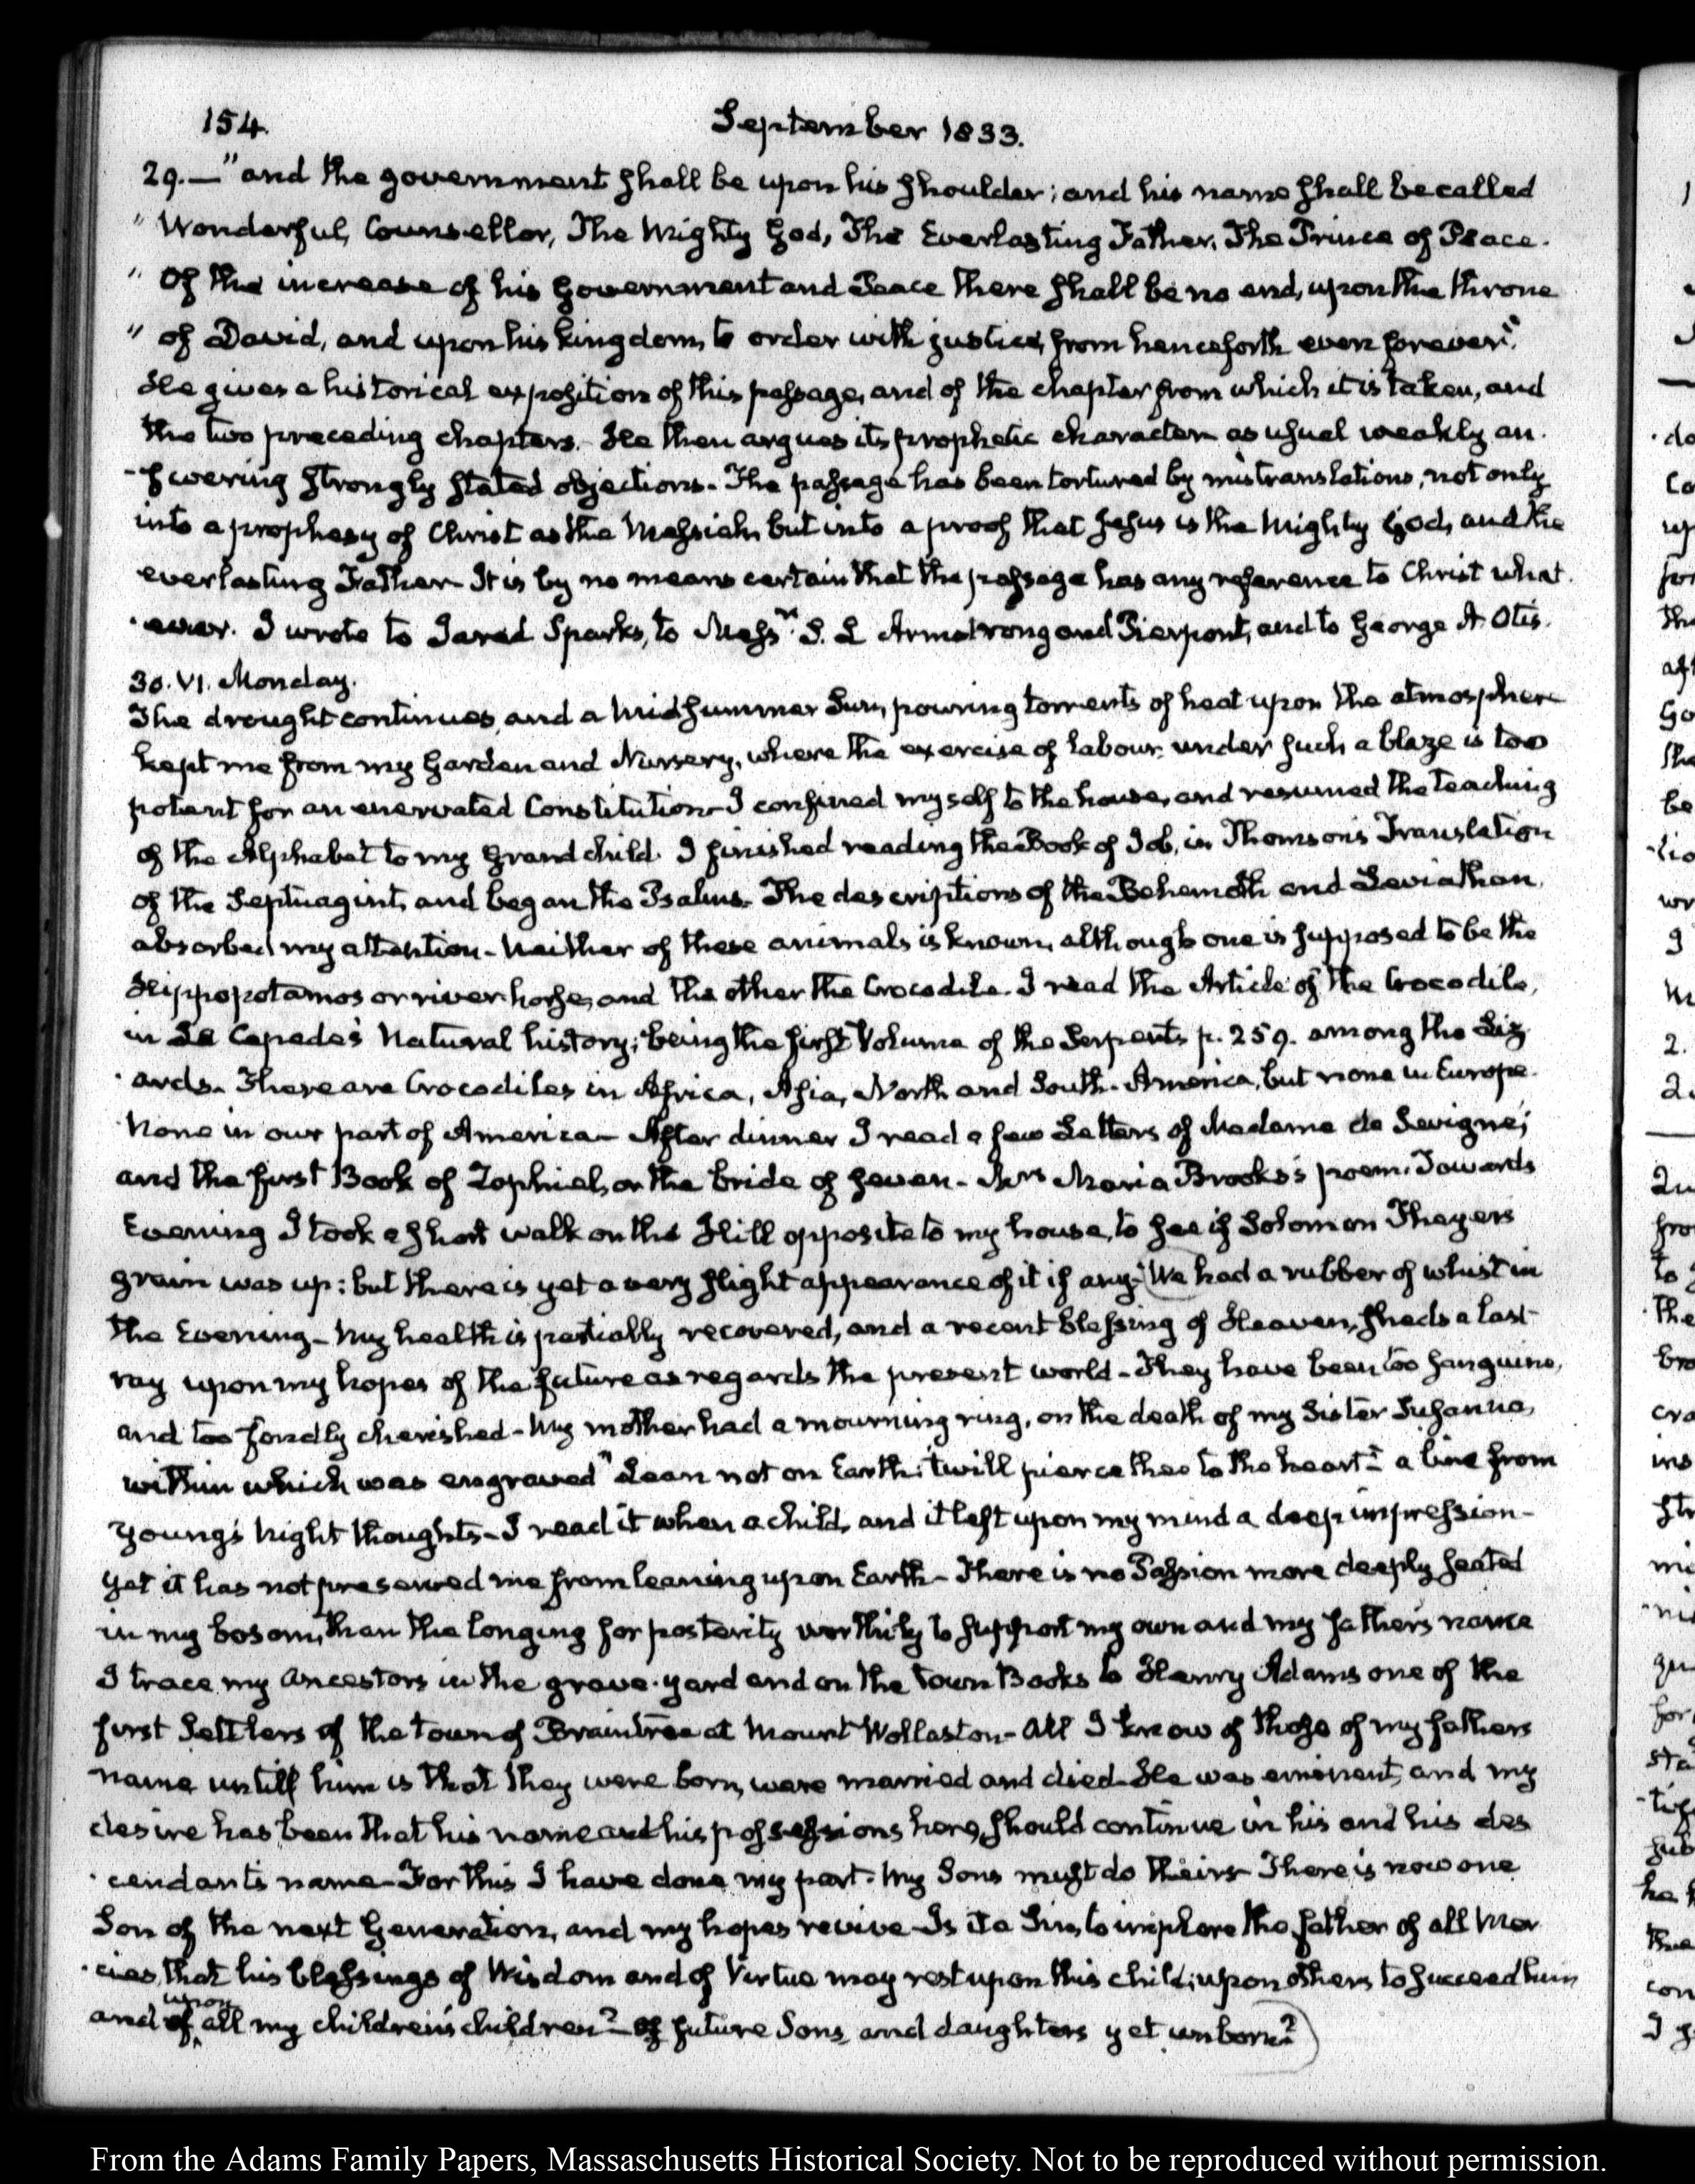 154.
September 1833.
29.—"and the government shall be upon his shoulder; and his name shall be called
" Wonderful, Counsellor, The Mighty God, The Everlasting Father, The Prince of Peace.
" Of the increase of his Government and Peace there shall be no end, upon the throne
" of David, and upon his kingdom, to order with justice, from henceforth even forever".
He gives a historical exposition of this passage, and of the chapter from which it is taken, and
the two preceding chapters. He then argues its prophetic character as usual weakly an-
-swering strongly stated objections. The passage has been tortured by mistranslations, not only
into a prophesy of Christ as the Messiah, but into a proof that Jesus is the Mighty God, and the
everlasting Father. It is by no means certain that the passage has any reference to Christ what-
-ever. I wrote to Jared Sparks, to Messrs. S. L Armstrong and Pierpont, and to George A. Otis.
30. VI. Monday.
The drought continues, and a Midsummer Sun, pouring torrents of heat upon the atmosphere
kept me from my Garden and Nursery, where the exercise of labour, under such a blaze is too
potent for an enervated Constitution. I confined myself to the house, and resumed the teaching
of the Alphabet to my Grandchild. I finished reading the Book of Job, in Thomson's Translation
of the Septuagint, and began the Psalms. The descriptions of the Behemoth and Leviathan,
absorbed my attention. Neither of these animals is known, although one is supposed to be the
Hippopotamos or river horse, and the other the Crocodile. I read the Article of the Crocodile,
in La Cepede's Natural history; being the first Volume of the Serpents p. 259. among the Liz-
-ards. There are Crocodiles in Africa, Asia, North and South-America, but none in Europe.
None in our part of America. After dinner I read a few Letters of Madame de Sevigné;
and the first Book of Zophiel, or the bride of Seven. Mrs. Maria Brooks's poem. Towards
Evening I took a short walk on the Hill opposite to my house, to see if Solomon Thayer's
grain was up: but there is yet a very slight appearance of it if any. We had a rubber of whist in
the Evening. My health is partially recovered, and a recent blessing of Heaven, sheds a last
ray upon my hopes of the future as regards the present world. They have been too sanguine,
and too fondly cherished. My mother had a mourning ring, on the death of my Sister Susanna,
within which was engraved "Lean not on Earth; 'twill pierce thee to the heart" a line from
Young's Night thoughts. I read it when a child, and it left upon my mind a deep impression-
yet it has not preserved me from leaning upon Earth. There is no Passion more deeply seated
in my bosom, than the longing for posterity worthily to support my own and my father's name
I trace my ancestors in the grave-yard and on the Town Books to Henry Adams one of the
first Settlers of the town of Braintree at Mount Wollaston. All I know of those of my father's
name untill him is that they were born, were married and died. He was eminent, and my
desire has been that his name and his possessions here, should continue in his and his des
-cendant's name. For this I have done my part. My Sons must do theirs. There is now one
Son of the next Generation, and my hopes revive. Is it a Sin, to implore the father of all Mer-
-cies, that his blessings of Wisdom and of Virtue may rest upon this child; upon others to succeed him
and of upon all my children's children? of future Sons, and daughters yet unborn?
From the Adams Family Papers, Massachusetts Historical Society. Not to be reproduced without permission.